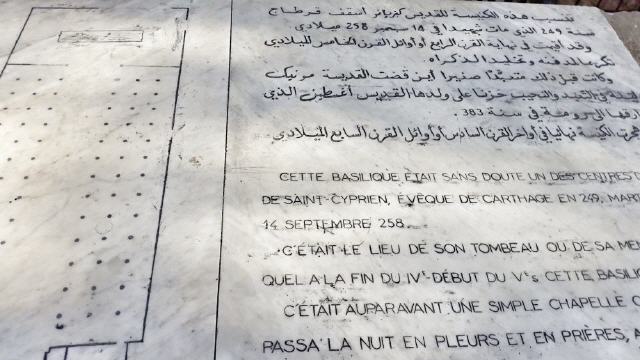 تنسب هذه الكنيسة للقديس كبريانز أسقف قرطاج
سنة 249 الذي مات شهيدا في 14 سبتمبر 258 ميلادي
وقد أقيمت في نهاية القرن الرابع أو أوائل القرن الخامس الميلادي
تكريما لمدفنه وتخليدا لذكراه.
وكانت قبل ذلك متعبدا صغيرا أين قضت القديسة مونيك
في التعبد والنحيب حزنا على ولدها القديس أغسطين الذي
الى رومة في سنة 383.
الكنيسة نهائيا في أواخر القرن السادس أو أوائل القرن السابع الميلادي
CETTE BASILIQUE ÉTAIT SANS DOUTE UN DES CENTRES D
DE SAINT-CYPRIEN, ÉVÊQUE DE CARTHAGE EN 249, MART
14 SEPTEMBRE 258.
C'ÉTAIT LE LIEU DE SON TOMBEAU OU DE SA ME
QUEL A LA FIN DU IVe-DÉBUT DU Ve s CETTE BASILI
C'ÉTAIT AUPARAVANT UNE SIMPLE CHAPELLE O
PASSA LA NUIT EN PLEURS ET EN PRIÈRES, A